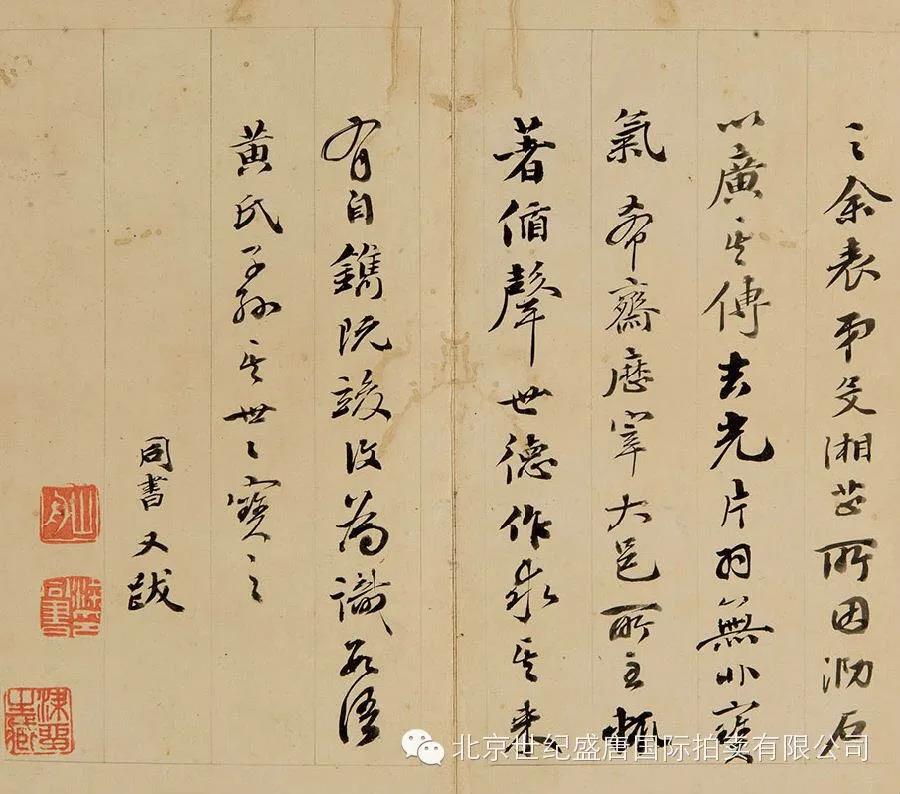 之余表弟
湘芷所因泐石
以廣其傳吉光片羽無非寶
氣 希齋歷宰大邑所至
著循聲世德作求其來
有自鐫既竣改為識數語
黄氏子孫其世世寶之
同書又跋
北京世纪盛唐国际拍卖有限公司